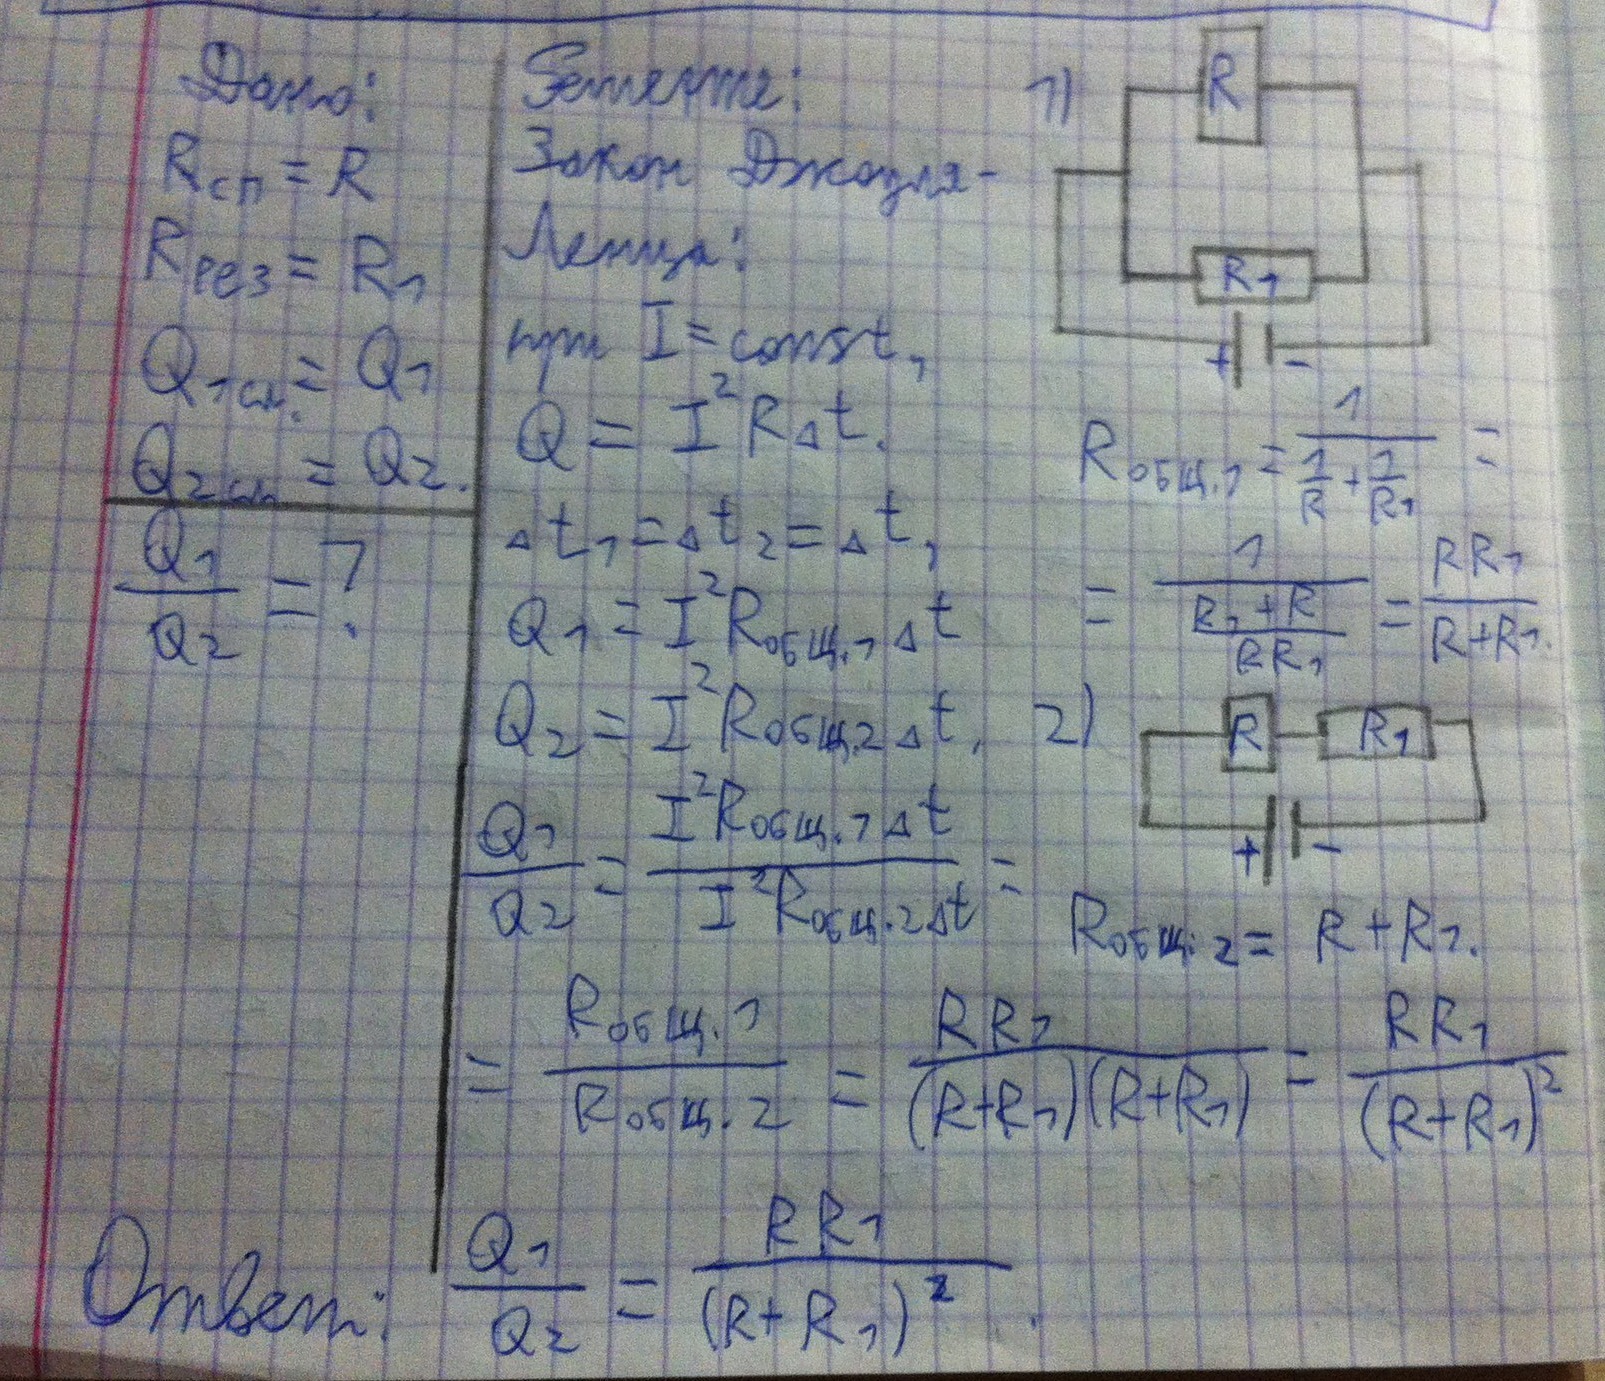 Дано:
Rсп = R
Rрез = R₁
Q₁сл. = Q₁
Q₂сл = Q₂.
Q₁/Q₂ = ?
Решение:
Закон Джоуля-
Ленца:
при I = const,
Q = I²RΔt.
Δt₁ = Δt₂ = Δt,
Q₁ = I²Rобщ.1 Δt
Q₂ = I²Rобщ.2 Δt.
Q₁/Q₂ = I²Rобщ.1 Δt / I²Rобщ.2 Δt =
1)
R
R₁
+ -
Rобщ.1 = 1/(1/R + 1/R₁) =
= 1/((R₁+R)/RR₁) = RR₁/(R+R₁).
2)
R R₁
+ -
Rобщ.2 = R+R₁.
= Rобщ.1/Rобщ.2 = RR₁/((R+R₁)(R+R₁)) = RR₁/(R+R₁)²
Ответ: Q₁/Q₂ = RR₁/(R+R₁)².